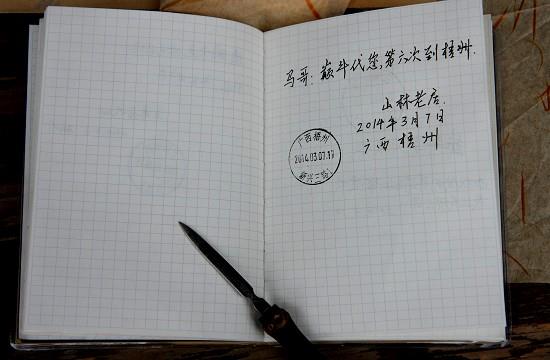 马哥：巅斗代您,第六次到梧州.
山林老店.
2014年3月7日
广西梧州
广西梧州
2014.03.07.17
新兴二路